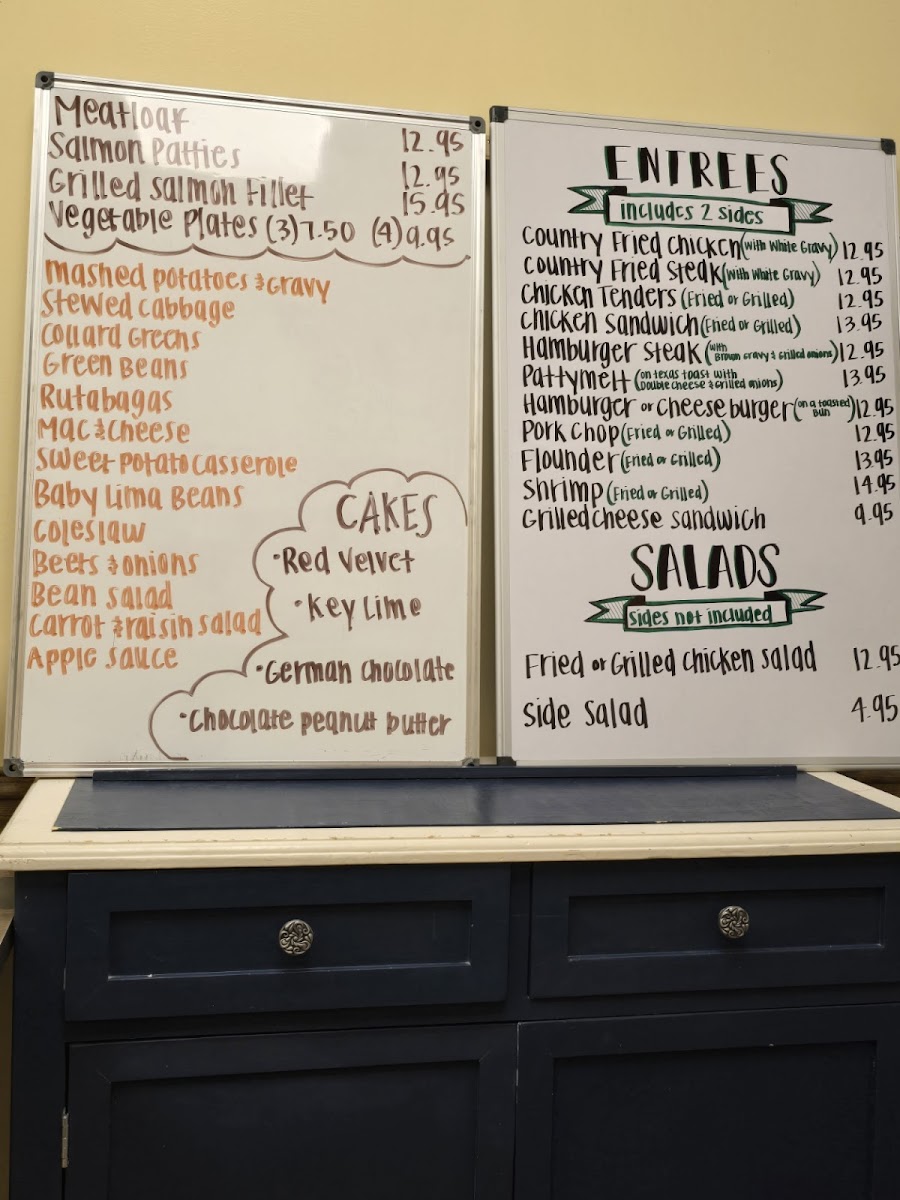 Meatloaf 12.95
Salmon Patties 12.95
Grilled Salmon Fillet 15.95
Vegetable Plates (3) 7.50 (4) 9.95
Mashed Potatoes & Gravy
Stewed Cabbage
Collard Greens
Green Beans
Rutabagas
Mac & Cheese
Sweet Potato Casserole
Baby Lima Beans
Coleslaw
Beets & onions
Bean Salad
Carrot & raisin salad
Apple Sauce
CAKES
• Red Velvet
• Key Lime
• German Chocolate
• Chocolate peanut butter
ENTREES
includes 2 sides
Country Fried Chicken (with White Gravy) 12.95
Country Fried Steak (with White Gravy) 12.95
Chicken Tenders (Fried or Grilled) 12.95
Chicken Sandwich (Fried or Grilled) 13.95
Hamburger Steak (with Brown Gravy & Grilled onions) 12.95
Pattymelt (on texas toast with Double cheese & grilled onions) 13.95
Hamburger or Cheeseburger (on a toasted Bun) 12.95
Pork Chop (Fried or Grilled) 12.95
Flounder (Fried or Grilled) 13.95
Shrimp (Fried or Grilled) 14.95
Grilled Cheese Sandwich 9.95
SALADS
sides not included
Fried or Grilled Chicken Salad 12.95
Side Salad 4.95